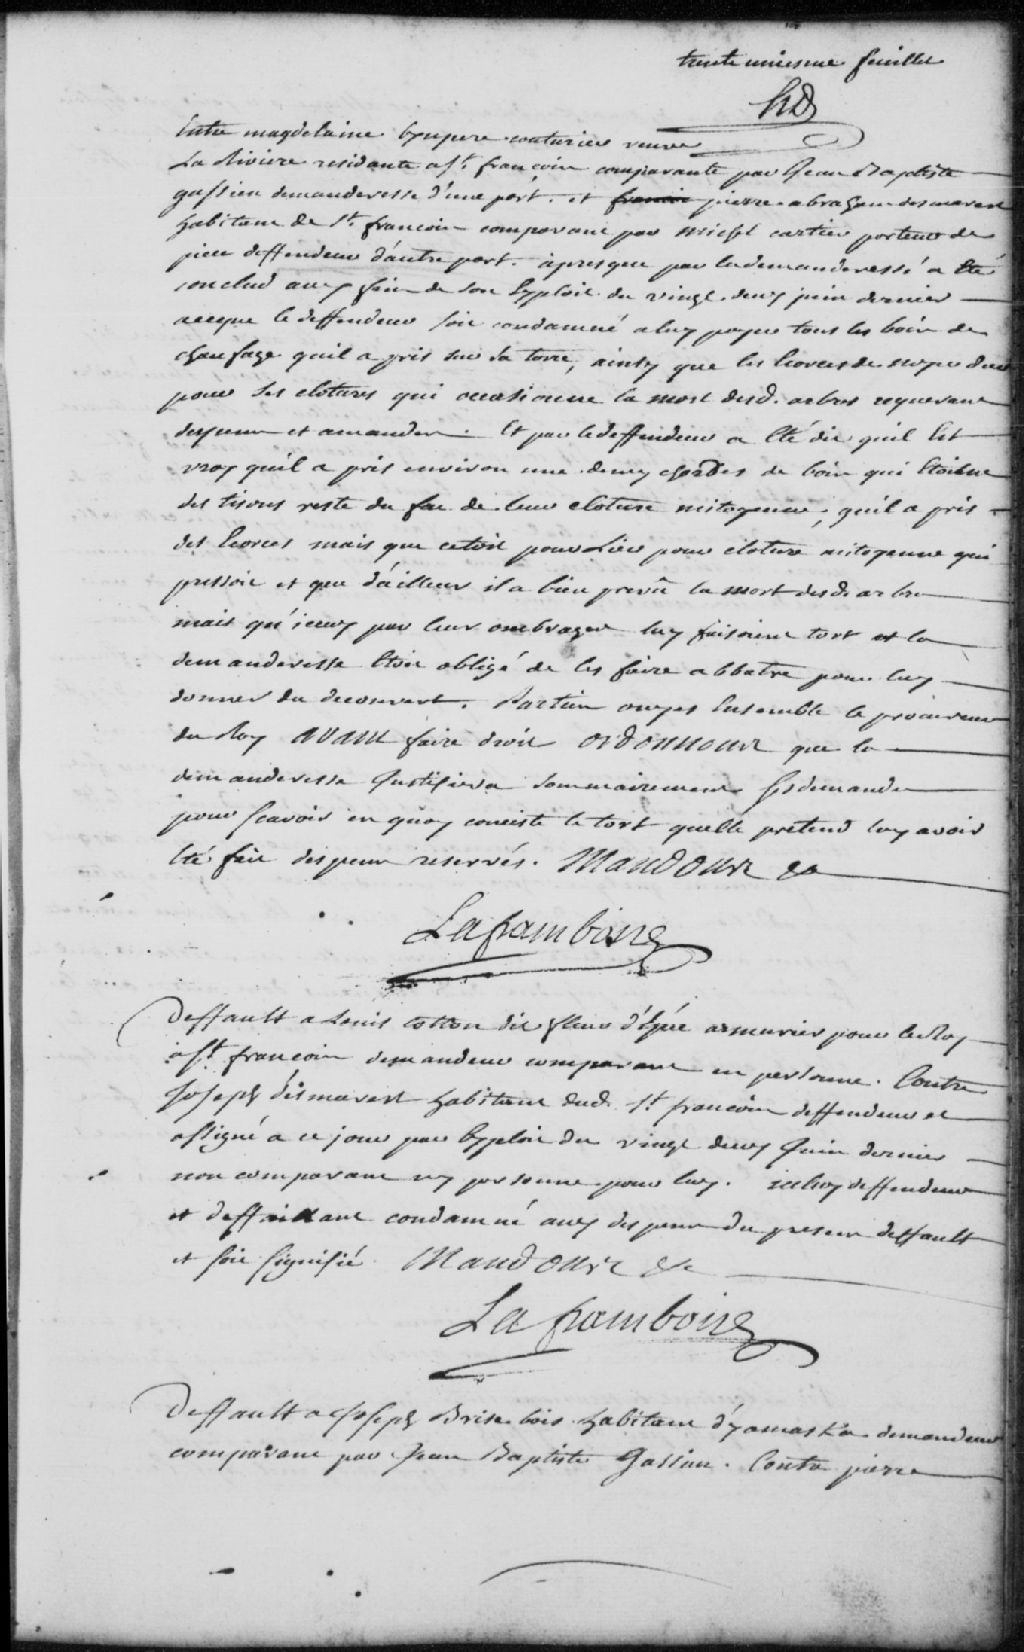 trente uniesme feuillet
hD
Entre magdelaine couturier veuve
La Riviere residante a St. françois comparante par Jean Baptiste
gassien demanderesse d'une part. et francois pierre abraham desmarest
habitant de St. francois comparant par Michel cartier porteur de
piece deffendeur d'autre part. apres que par la demanderesse a Eté
conclud aux fins de son Exploit du vingt deux juin dernier
ace que le deffendeur soit condamné a luy payer tous les bois de
chaufage quil a pris sur sa terre, ainsy que les Ecorces de
pour ses clotures qui occasionne la mort desd. arbres requerant
depens et amandes. Et par le deffendeur a Eté dit quil Est
vray quil a pris environ une demy chordes de bois qui Etoient
des tisons reste du feu de leur cloture mitoyenne, quil a pris
des Ecorces mais que cetoit pour Liér pour cloture mitoyenne qui
pressoit et que d'ailleur il a bien prevû la mort desd. arbre
mais qu'iceux par leur ombrages luy faisoient tort et la
demanderesse Etoit obligé de les faire abbatre pour luy
donner du decouvert. Parties ouyes Ensemble le procureur
du Roy avant faire droit ordonnons que la
demanderesse Justifiera sommairement sa demande
pour scavoir en quoy consiste le tort quelle pretend luy avoir
Eté fait depens reservés. Mandons &a
Laframboise
Deffault a Denis cotton dit fleur d'Epée armurier pour le Roy
a St. francois demandeur comparant en personne. Contre
Joseph desmarest habitant dud. St. francois deffendeur et
assigné a ce jour par Exploit du vingt deux Juin dernier
non comparant ny personne pour luy. iceluy deffendeur
et deffaillant condamné aux depens du present deffault
et soit signifié. Mandons &a
Laframboise
Deffault a Joseph Brisebois habitant d'yamaska demandeur
comparant par Jean Baptiste Gassien. Contre pierre